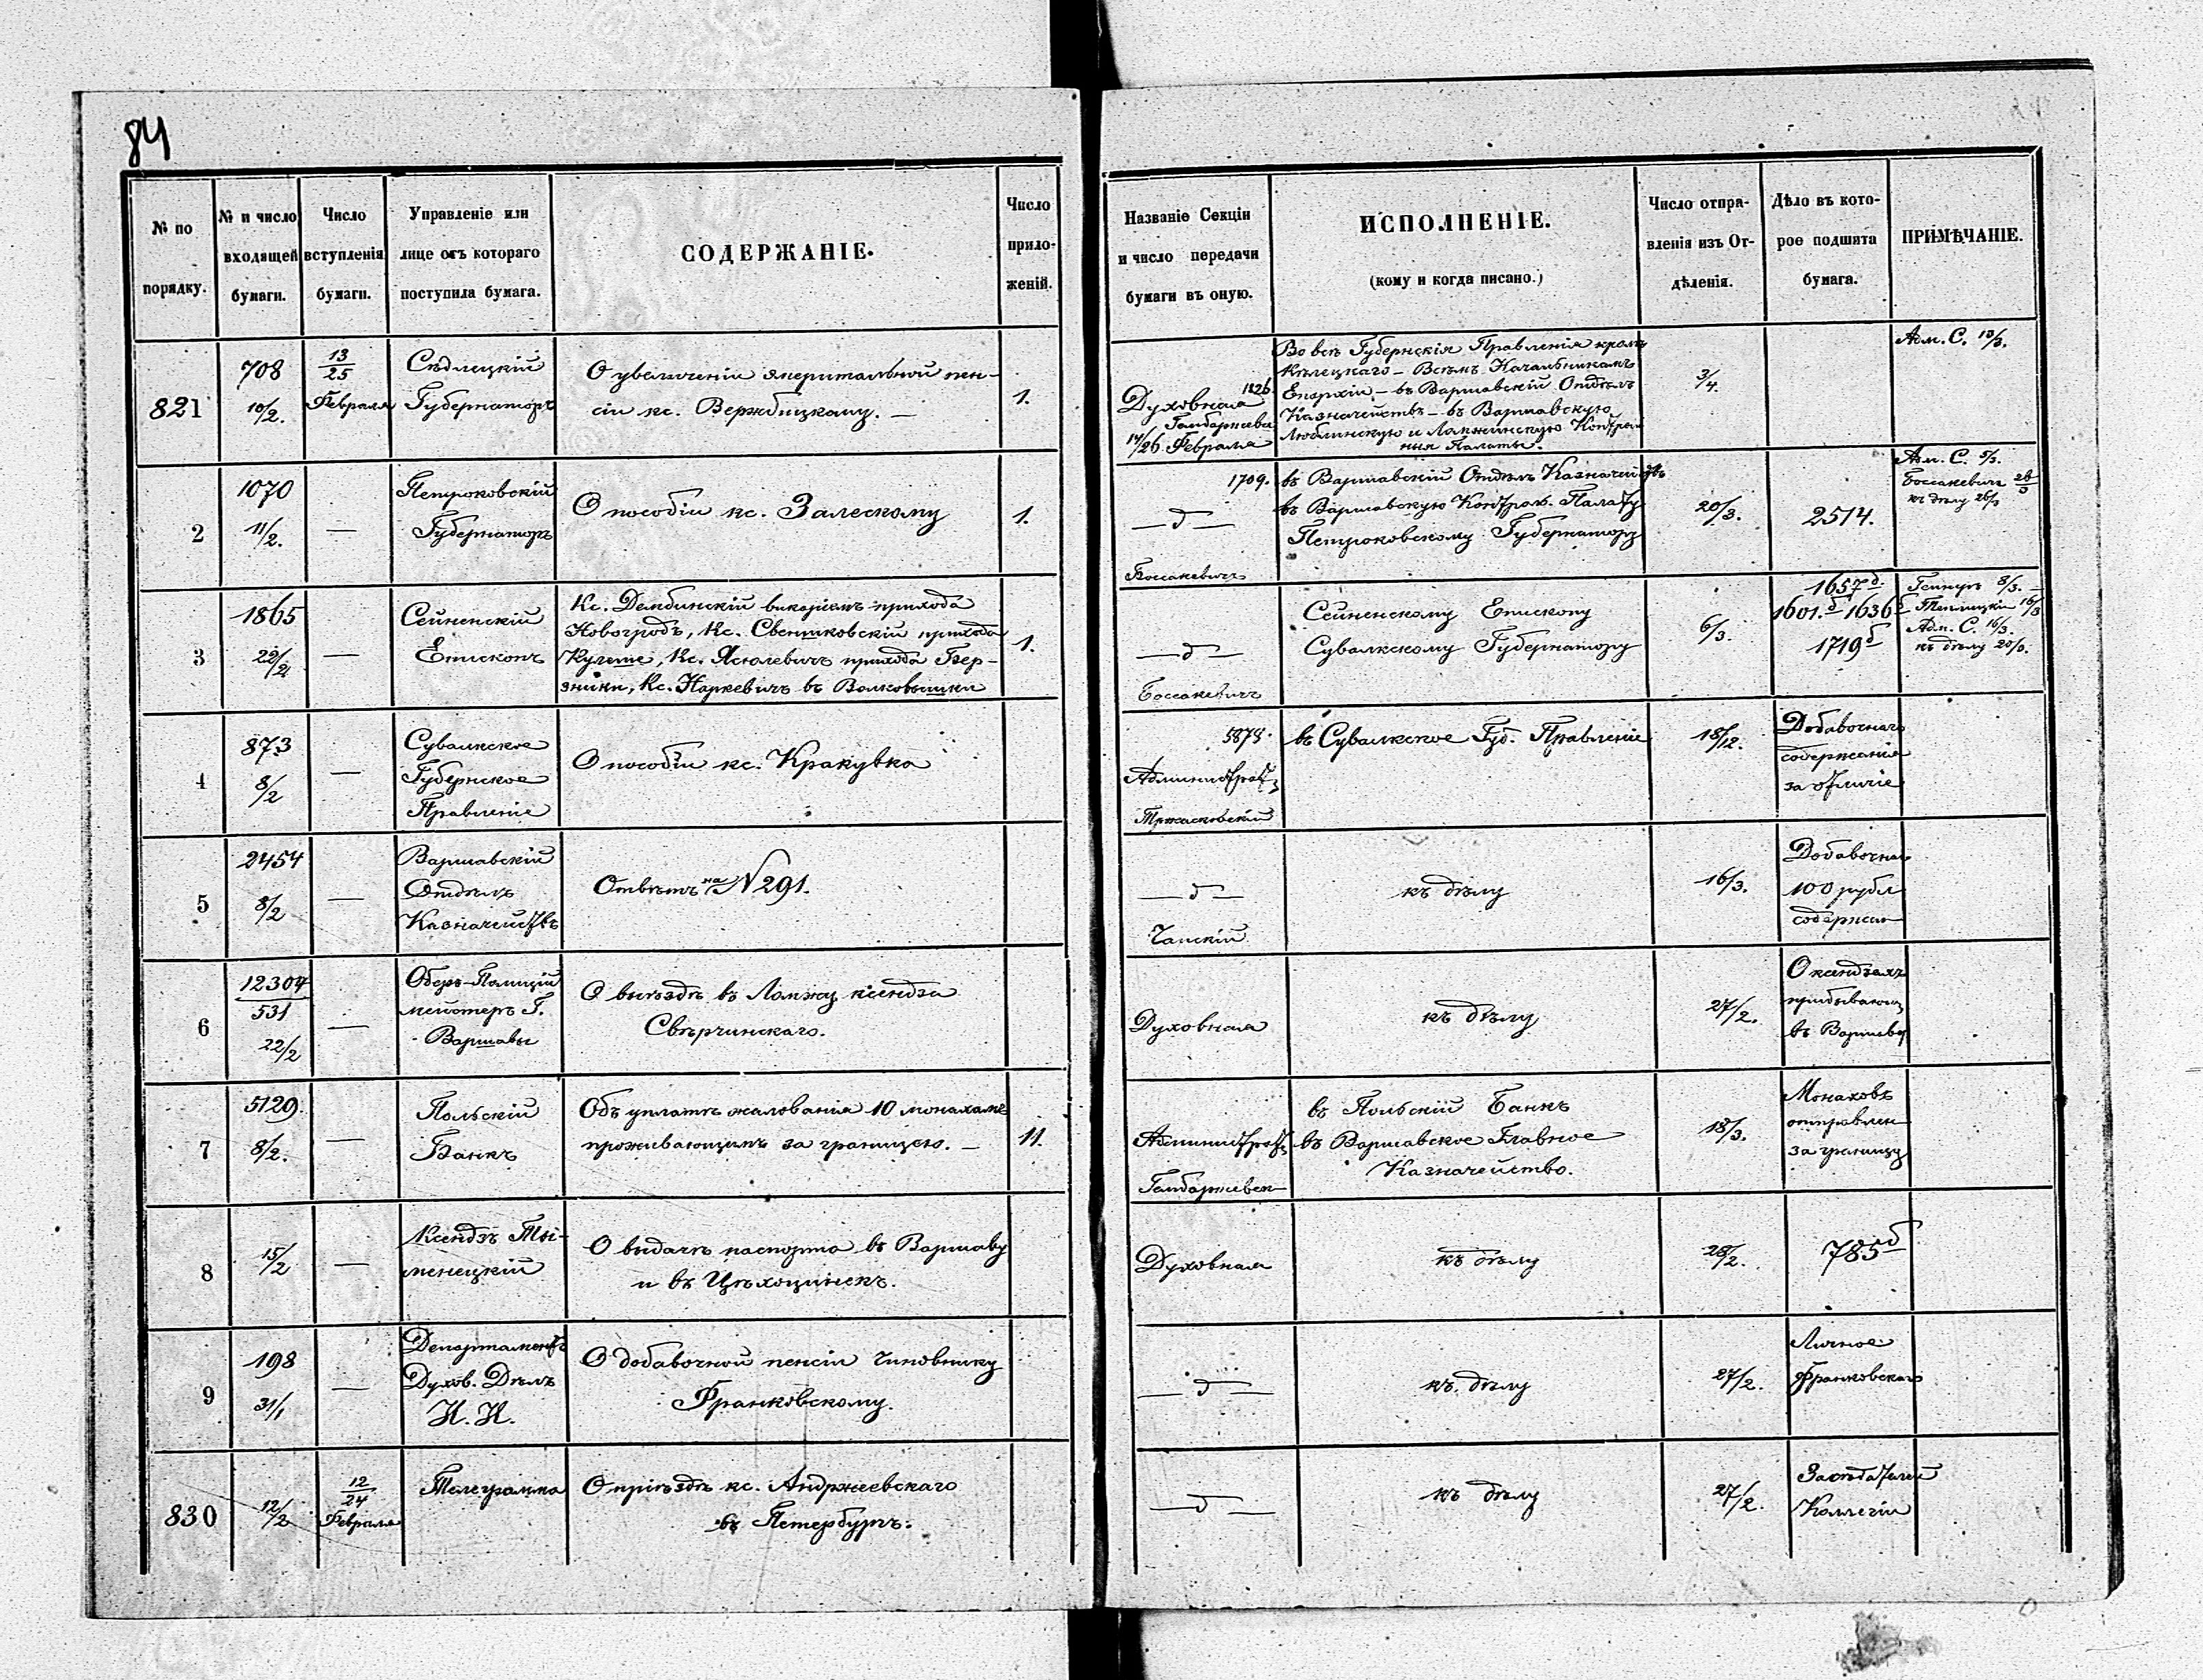 84
№ по
порядку.
№ и число
входящей
бумаги.
Число
вступленія
бумаги.
Управленіе или
лице отъ котораго
поступила бумага.
СОДЕРЖАНІЕ.
Число
прило-
женій.
Названіе Секціи
и число передачи
бумаги въ оную.
ИСПОЛНЕНІЕ.
(кому и когда писано.)
Число отпра-
вленія изъ От-
дѣленія.
Дѣло въ кото-
рое подшита
бумага.
ПРИМѢЧАНІЕ.
821
708
10/2.
13/25
Февраля
Сѣдлецкій
Губернаторъ
О увеличеніи эмеритальной пен-
сіи кс. Вержбицкому. —
1.
1826
Духовная
14/26 Февраля
Во всѣ Губернскія Правленія кромѣ
Кѣлецкаго — Всѣмъ Начальникамъ
Епархіи — въ Варшавскій Отдѣлъ
Казначействъ — въ Варшавскую
Люблинскую и Ломжинскую Контроль
ныя Палаты.
3/4.
Адм. С. 10/3.
2
1070
11/2.
—
Петроковскій
Губернаторъ
О пособіи кс. Залескому
1.
1709.
— д —
Боссакевичъ
въ Варшавскій Отдѣлъ Казначействъ
въ Варшавскую Контрол. Палату
Петроковскому Губернатору
20/3.
2514.
Адм. С. 5/3.
Боссакевичъ
къ дѣлу 26/3
3
1865
22/2
—
Сейненскій
Епископъ
Кс. Дембинскій викаріемъ прихода
Новогродъ, Кс. Свентковскій прихода
Кулеше, Кс. Ясюлевичъ прихода Бер-
зники, Кс. Наркевичъ въ Волковышки
1.
— д —
Боссакевичъ
Сейненскому Епископу
Сувалкскому Губернатору
6/3.
1657 д.
1601. д 1636 д
1719 д
8/3. —
16/3
Адм. С. 16/3.
къ дѣлу 20/3.
4
873
8/2
—
Сувалкское
Губернское
Правленіе
О пособіи кс. Кракувка
5875.
Администрат.
въ Сувалкское Губ. Правленіе
18/12.
Добавочнаго
содержанія
за отличіе
5
2454
8/2
—
Варшавскій
Отдѣлъ
Казначействъ
Отвѣтъ на N 291.
— д —
Чапскій
къ дѣлу
16/3.
Добавочная
100 рубл
содержан
6
12304
531
22/2
—
Оберъ-Полицій
мейстеръ Г.
Варшавы
О выѣздѣ въ Ломжу ксендза
Свѣрчинскаго.
Духовная
къ дѣлу
27/2.
О ксендзахъ
прибывающ
въ Варшаву
7
5129.
8/2.
—
Польскій
Банкъ
Объ уплатѣ жалованія 10 монахамъ
проживающимъ за границею. —
11.
Администрат.
въ Польскій Банкъ
въ Варшавское Главное
Казначейство.
18/3.
Монаховъ
отправлен
за границу
8
15/2
—
Ксендзъ Ты-
менецкій
О выдачѣ паспорта въ Варшаву
и въ Цѣхоцинекъ.
Духовная
къ дѣлу
28/2.
785 д
9
198
31/1
—
Департаментъ
Духов. Дѣлъ
И. И.
О добавочной пенсіи чиновнику
Франковскому.
— д —
къ дѣлу
27/2.
Личное
Франковскаго
830
12/2
12/24
Февраля
Телеграмма
О пріѣздѣ кс. Андржеевскаго
въ Петербургъ.
— д —
къ дѣлу
27/2.
Засѣдателей
Коллегіи